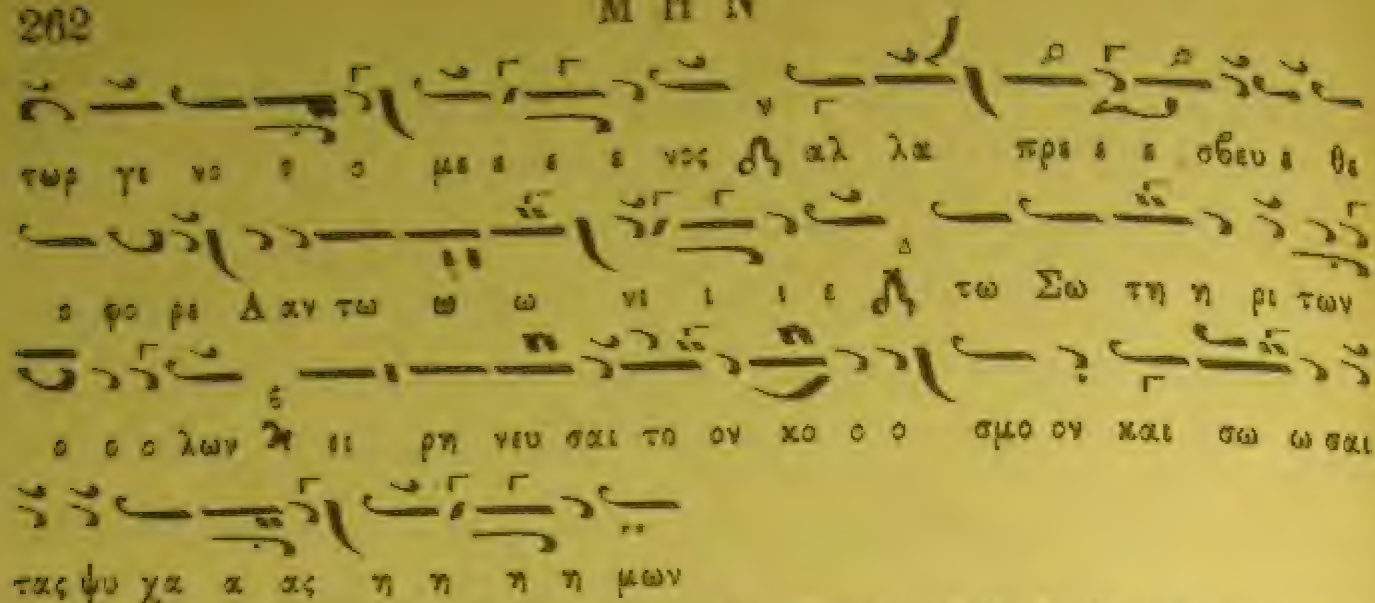 262 ΜΗΝ
τωρ γε νο ο ο με ε ε ε νος αλ λα πρε ε ε σβευ ε θε
ο φο ρε Α αν τω ω ω νι ι ι ε τω Σω τη η ρι των
ο ο ο λων ει ρη νευ σαι το ον κο ο ο σμο ον και σω ω σαι
τας ψυ χα α ας η η η η μων